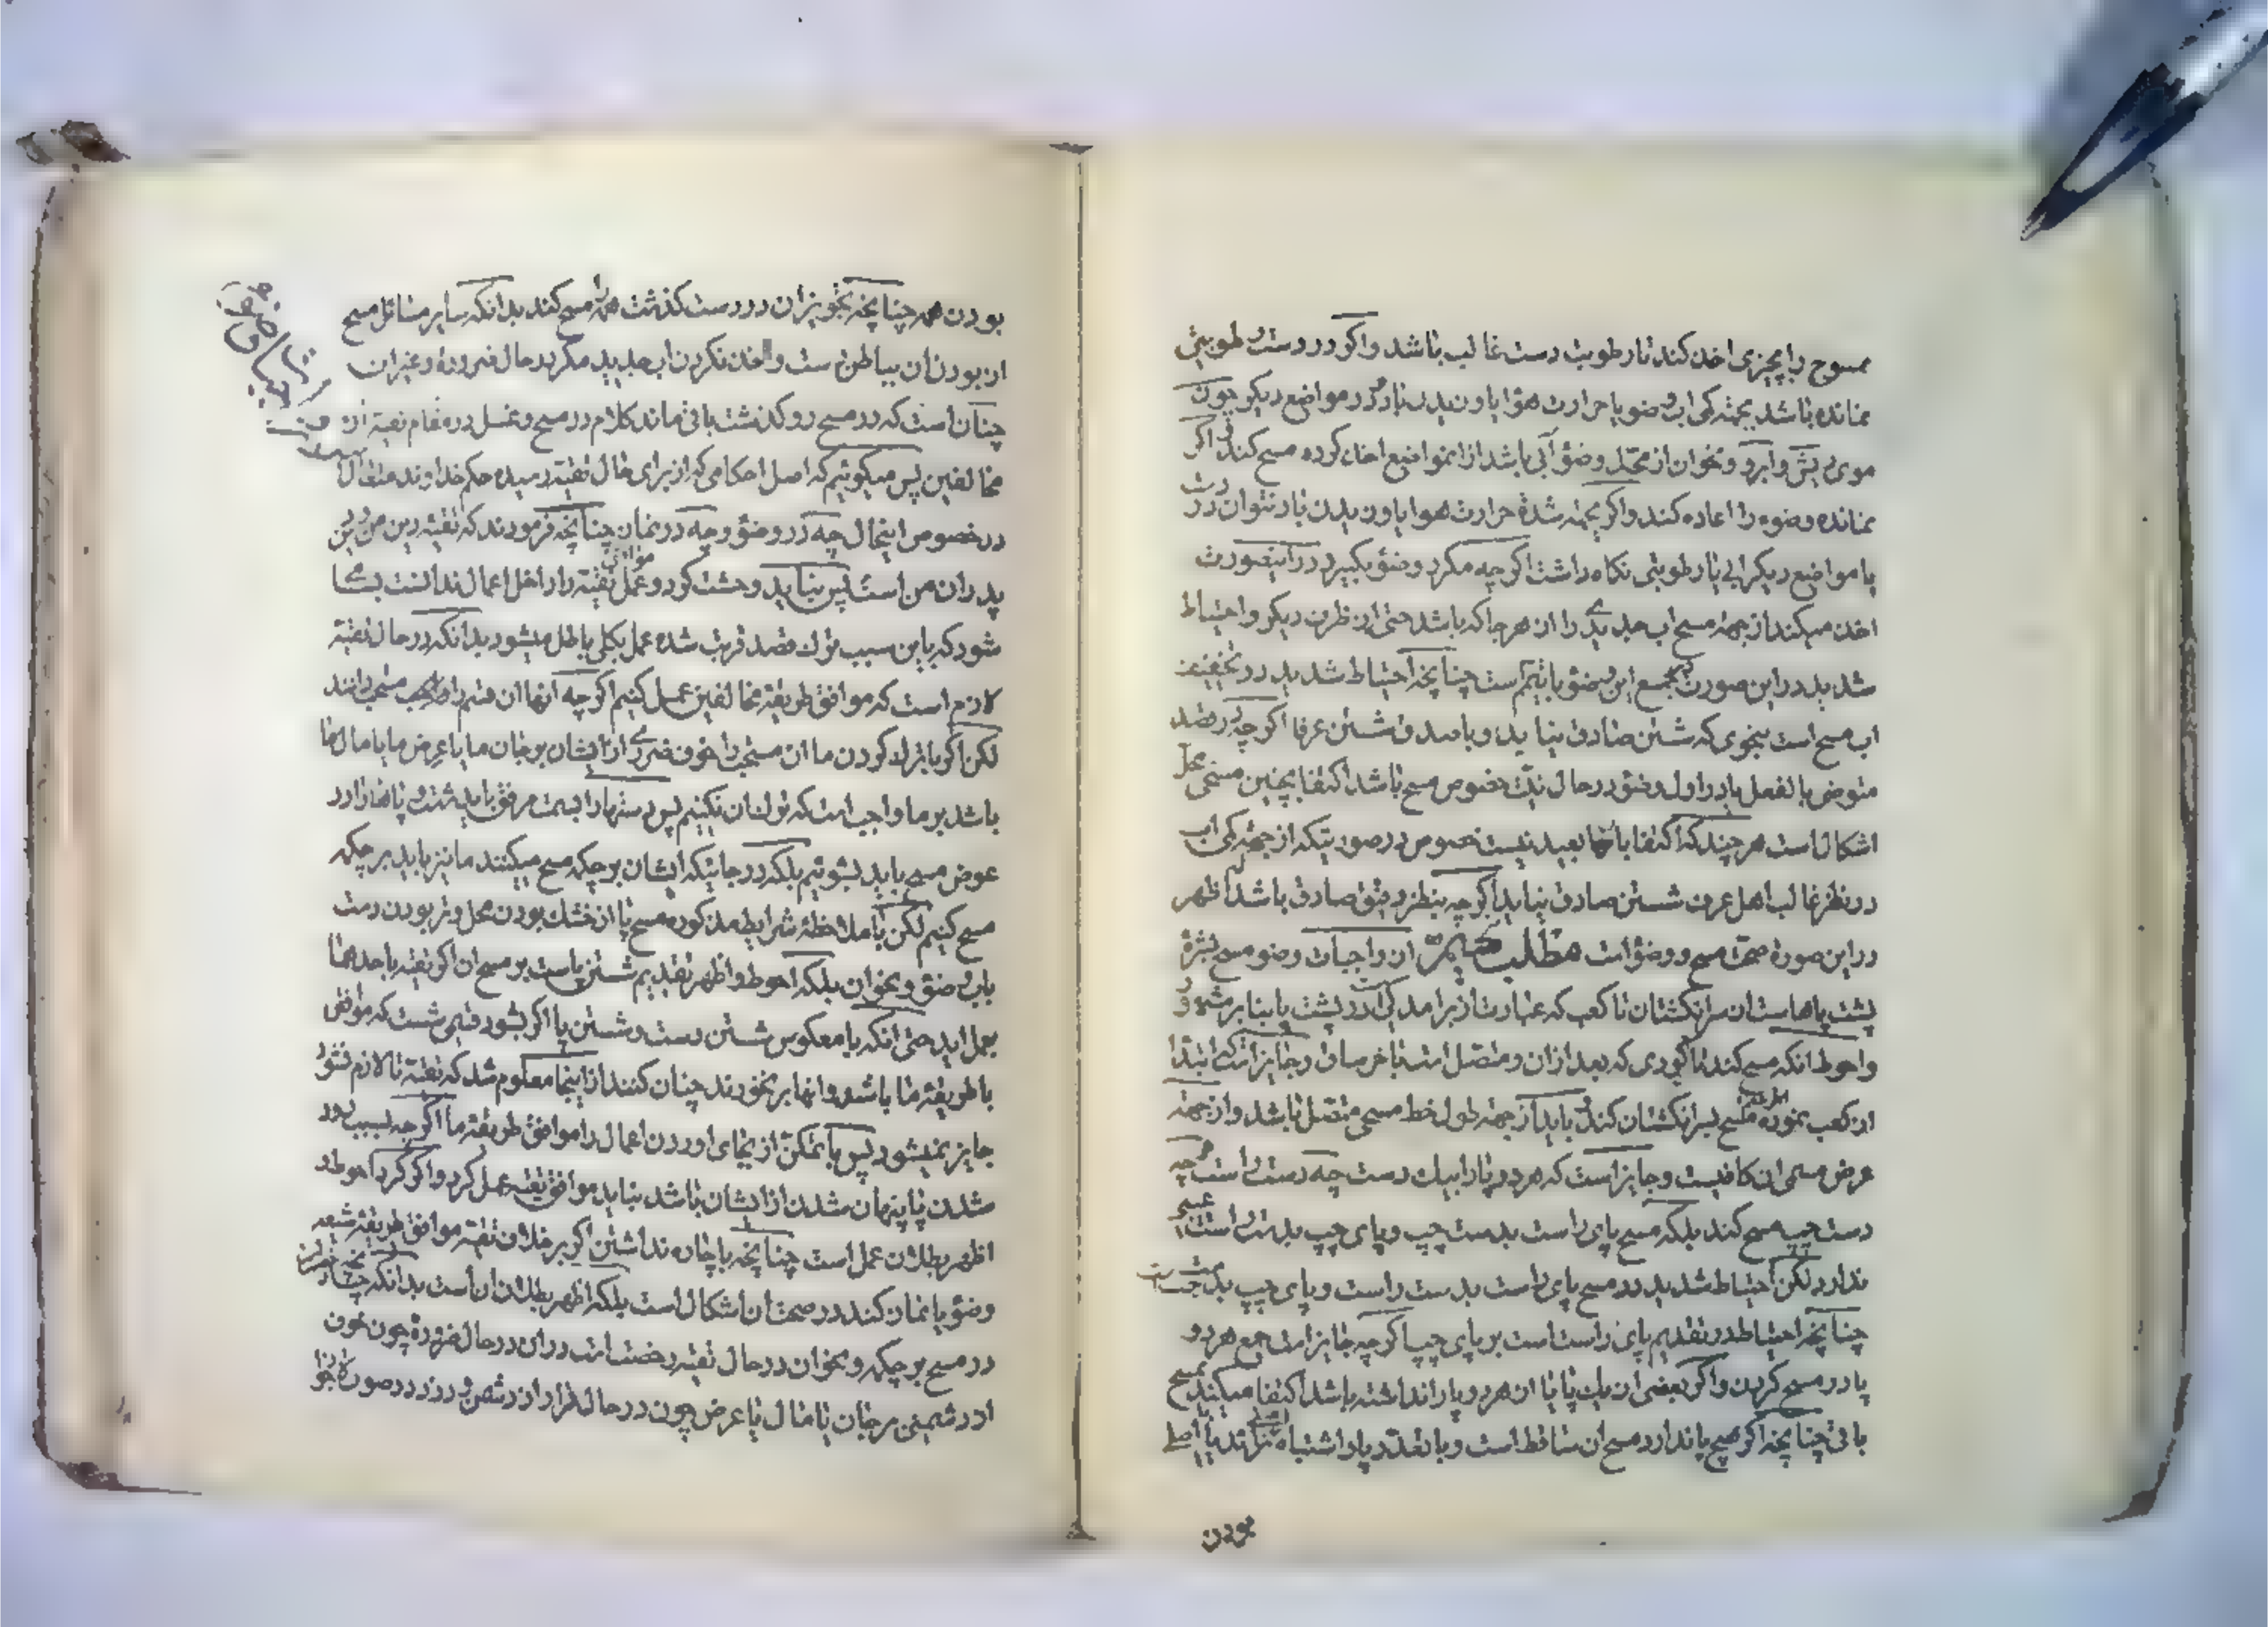 ممسوح را بچیزی اخذ کند تا رطوبت دست غالب باشد و اکر در دست رطوبتی
نمانده باشد بجهة کمی اب وضو یا حرارت هوا یا وزیدن باد در مواضع دیکر چون
موی ریش و ابرو و نحوان از محل وضو آبی باشد از انمواضع اخذ کرده مسح کند و اکر
نمانده وضوء را اعاده کند و اکر بجهة شدة حرارت هوا یا وزیدن باد نتوان در
یا مواضع دیکر ابی یا رطوبتی نکاه داشت اکرچه مکرر وضو بکیرد در اینصورت
اخذ میکند از جهة مسح اب جدیدی را از هر جا که باشد حتی از ظرف دیکر و احتیاط
شدید در این صورت جمع این وضو با تیمم است چنانچه احتیاط شدید در تخفیف
اب مسح است بنحوی که شستن صادق نیاید و با صدق شستن عرفا اکرچه قصد
متوضی بالفعل یا در اول وضو در حال نیت خصوص مسح باشد اکتفا بچنین مسحی محل
اشکال است هر چند که اکتفا بانها بعید نیست خصوص در صورتیکه از جهة کمی اب
در نظر غالب اهل عرف شستن صادق نیاید اکرچه بنظر دقیق صادق باشد اظهر
در این صورة صحت مسح و وضو است مطلب از واجبات وضو مسح بشرۀ
پشت پاها است از سر انکشتان تا کعب که عبارت از برامدکی در پشت پا بنا بر مشهور
و احوط انکه مسح کند تا کودی که بعد از ان و متصل است باخر ساق و جایز است که ابتدا
از کعب نموده مسح بسر انکشتان کند و باید از جهة طول خط مسحی متصل باشد و از جهة
عرض مسمی ان کافیست و جایز است که هر دو پا را بیک دست چه دست راست و چه
دست چپ مسح کند بلکه مسح پای راست بدست چپ و پای چپ بدست راست عیبی
ندارد لکن احتیاط شدید در مسح پای راست بدست راست و پای چپ بدست چپ است
چنانچه احتیاط در تقدیم پای راست است بر پای چپ اکرچه جایز است جمع هر دو
پا در مسح کردن و اکر بعضی از یک پا یا از هر دو پا را نداشته باشد اکتفا میکند بمسح
باقی چنانچه اکر هیچ پا ندارد مسح ان ساقط است و با تعدد پا و اشتباه زاید با اصلی
بودن
بودن همه چنانچه نظیر ان در دست کذشت همه را مسح کند بدانکه سایر مسائل مسح
از بودن ان بباطن دست و اخذ نکردن اب جدید مکر در حال ضرورة و غیر ان
چنان است که در مسح رو کذشت باقی ماند کلام در مسح و غسل در مقام تقیة از
مخالفین پس میکوئیم که اصل احکامی که از برای حال تقیة رسیده حکم خداوند متعال
در خصوص اینحال چه در وضو و چه در نماز چنانچه فرمودند که تقیه دین من و دین
پدران من است پس نباید وحشت کرد و عمل موافق تقیة را داخل اعمال ندانست بسا
شود که باین سبب ترک قصد قربت شده عمل بکلی باطل میشود بدانکه در حال تقیة
لازم است که موافق طریقه مخالفین عمل کنیم اکرچه انها ان قسم را مستحب دانند
لکن اکر با ترک کردن ما ان مستحب را خوف ضرری از ایشان بر جان ما یا عرض ما یا مال ما
باشد بر ما واجب است که ترک ان نکنیم پس دستها را بسمت مرفق باید شست و پاها را در
عوض مسح باید بشوئیم بلکه در جائیکه ایشان بر چکمه مسح میکنند ما نیز باید بر چکمه
مسح کنیم لکن با ملاحظۀ شرایط مذکوره مسح پا از خشک بودن محل و تر بودن دست
باب وضو و نحو ان بلکه احوط و اظهر تقدیم شستن پا است بر مسح ان اکر تقیه باحدهما
بعمل اید حتی انکه با معکوس شستن دست و شستن پا اکر بشود قسمی شست که موافق
با طریقه ما باشد و انها بر نخورند چنان کنند از اینجا معلوم شد که تقیة تا لازم نشود
جایز نمیشود پس با تمکن از بجای اوردن اعمال را موافق طریقة ما اکرچه بسبب دور
شدن یا پنهان شدن از ایشان باشد نباید موافق تقیه عمل کرد و اکر کرد احوط و
اظهر بطلان عمل است چنانچه با چاره نداشتن اکر بر خلاف تقیة موافق طریقه شیعه
وضو یا نماز کند در صحت ان اشکال است بلکه اظهر بطلان ان است بدانکه چنانچه
در مسح بر چکمه و نحو ان در حال تقیه رخصت است در ان در حال ضرورة چون خوف
از دشمنی بر جان یا مال یا عرض چون در حال فرار از دشمن و دزد در صورة